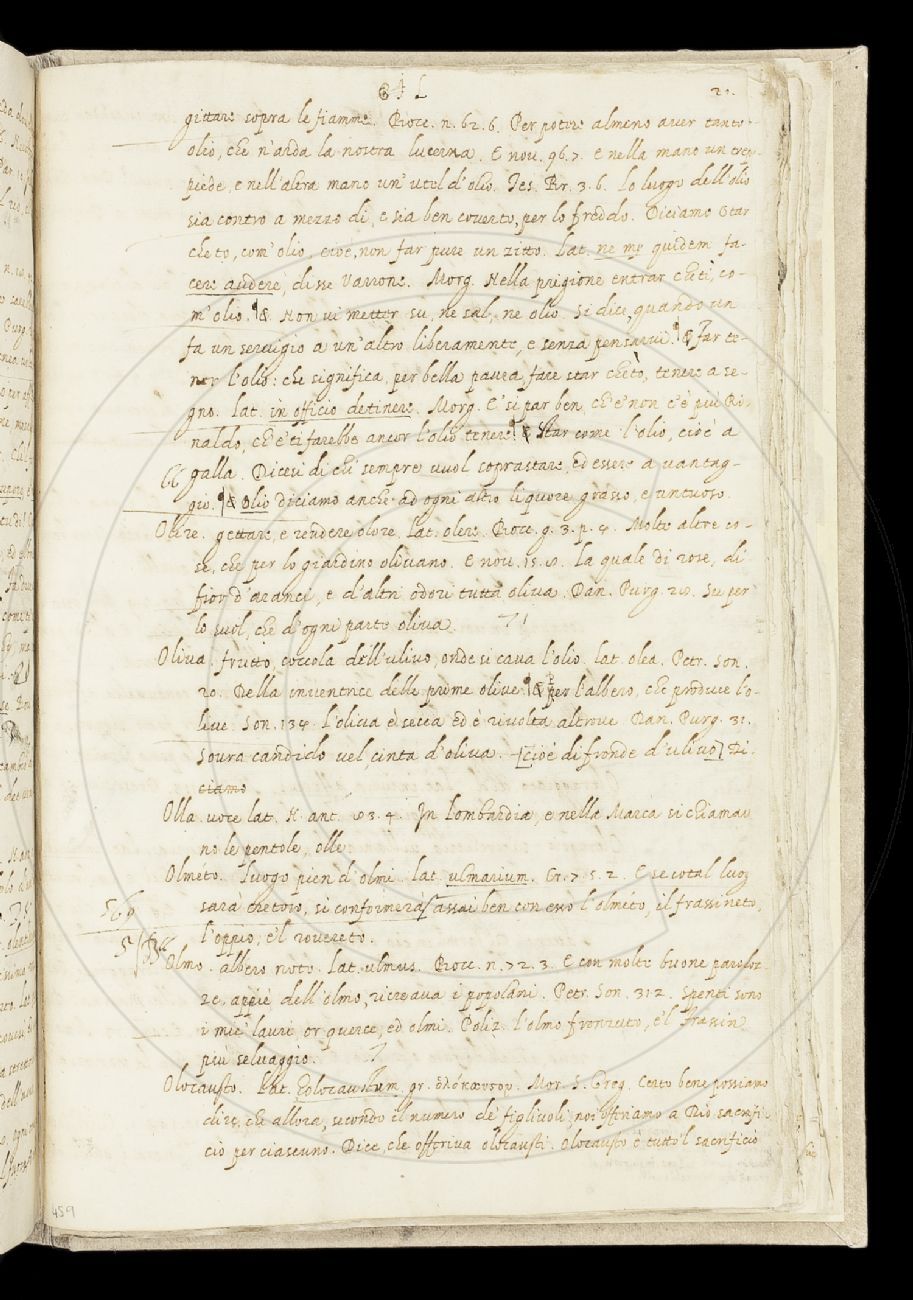 O L 20.
gittare sopra le fiamme. Bocc. n. 62. 6. Per potere almeno aver tanto
olio, che n'arda la nostra lucerna. E nov. 96. 7. e nella mano un trep-
piede, e nell'altra mano un' utel d'olio. Tes. Br. 3. 6. Lo luogo dell'olio
sia contro a mezzo di, e sia ben coverto, per lo freddo. Diciamo Star
cheto, com' olio, cioè, non far pure un zitto. Lat. ne my quidem fa-
cere audere, disse Varrone. Morg. Nella prigione entrar cheti, co-
m' olio. & Non vi metter su, ne sal, ne olio. Si dice, quando un
fa un servigio a un' altro liberamente, e senza pensarvi. & Far te-
ner l'olio: che significa, per bella paura fare star cheto, tenere a se-
gno. Lat. in officio detinere. Morg. E' si par ben, ch' e' non c'è più Ri-
naldo, ch' e' ti farebbe ancor l'olio tenere. & Star come l'olio, cioè a
66 galla. Dicesi di chi sempre vuol soprastare, ed essere a vantag-
gio. & Olio diciamo anche ad ogni altro liquore grasso, e untuoso.
Olire. gettare, e rendere olore. Lat. olere. Bocc. g. 3. p. 4. Molte altre co-
se, che per lo giardino olivano. E nov. 15. 8. La quale di rose, di
fior d'aranci, e d'altri odori tutta oliva. Dan. Purg. 28. Su per
lo suol, che d'ogni parte oliva. 71
Oliva. frutto, coccola dell'ulivo, onde si cava l'olio. Lat. olea. Petr. Son.
20. Della inventrice delle prime olive. & per l'albero, che produce l'o-
live. Son. 134. l'oliva è secca ed è rivolta altrove Dan. Purg. 31.
Sovra candido vel, cinta d'oliva. [cioè di fronde d'ulivo] Di
ciamo
Olla. voce lat. N. ant. 83. 4. In Lombardia, e nella Marca si chiama
no le pentole, olle.
Olmeto. Luogo pien d'olmi. Lat. ulmarium. Cr. 7. 5. 2. E se cotal luog
569 sarà chetoso, si conformerà assai ben con esso l'olmeto, il frassineto,
l'oppio, e'l rovereto.
Olmo. albero noto. Lat. ulmus. Bocc. n. 72. 3. E con molte buone paroloz
ze, appiè dell'olmo, ricreava i popolani. Petr. Son. 312. Spenti sono
i miei lauri, or querce, ed olmi. Poliz. l'olmo fronzuto, e'l frassin
più selvaggio. 7
Olocausto. Lat. holocaustum, gr. ὁλόκαυσον. Mor. S. Greg. Certo bene possiamo
dire, che allora, secondo il numero de' figlivoli, noi offriamo a Dio sacrifi-
cio per ciascuno. Dice, che offeriva olocausti. Olocausto è tutto'l sacrificio
459